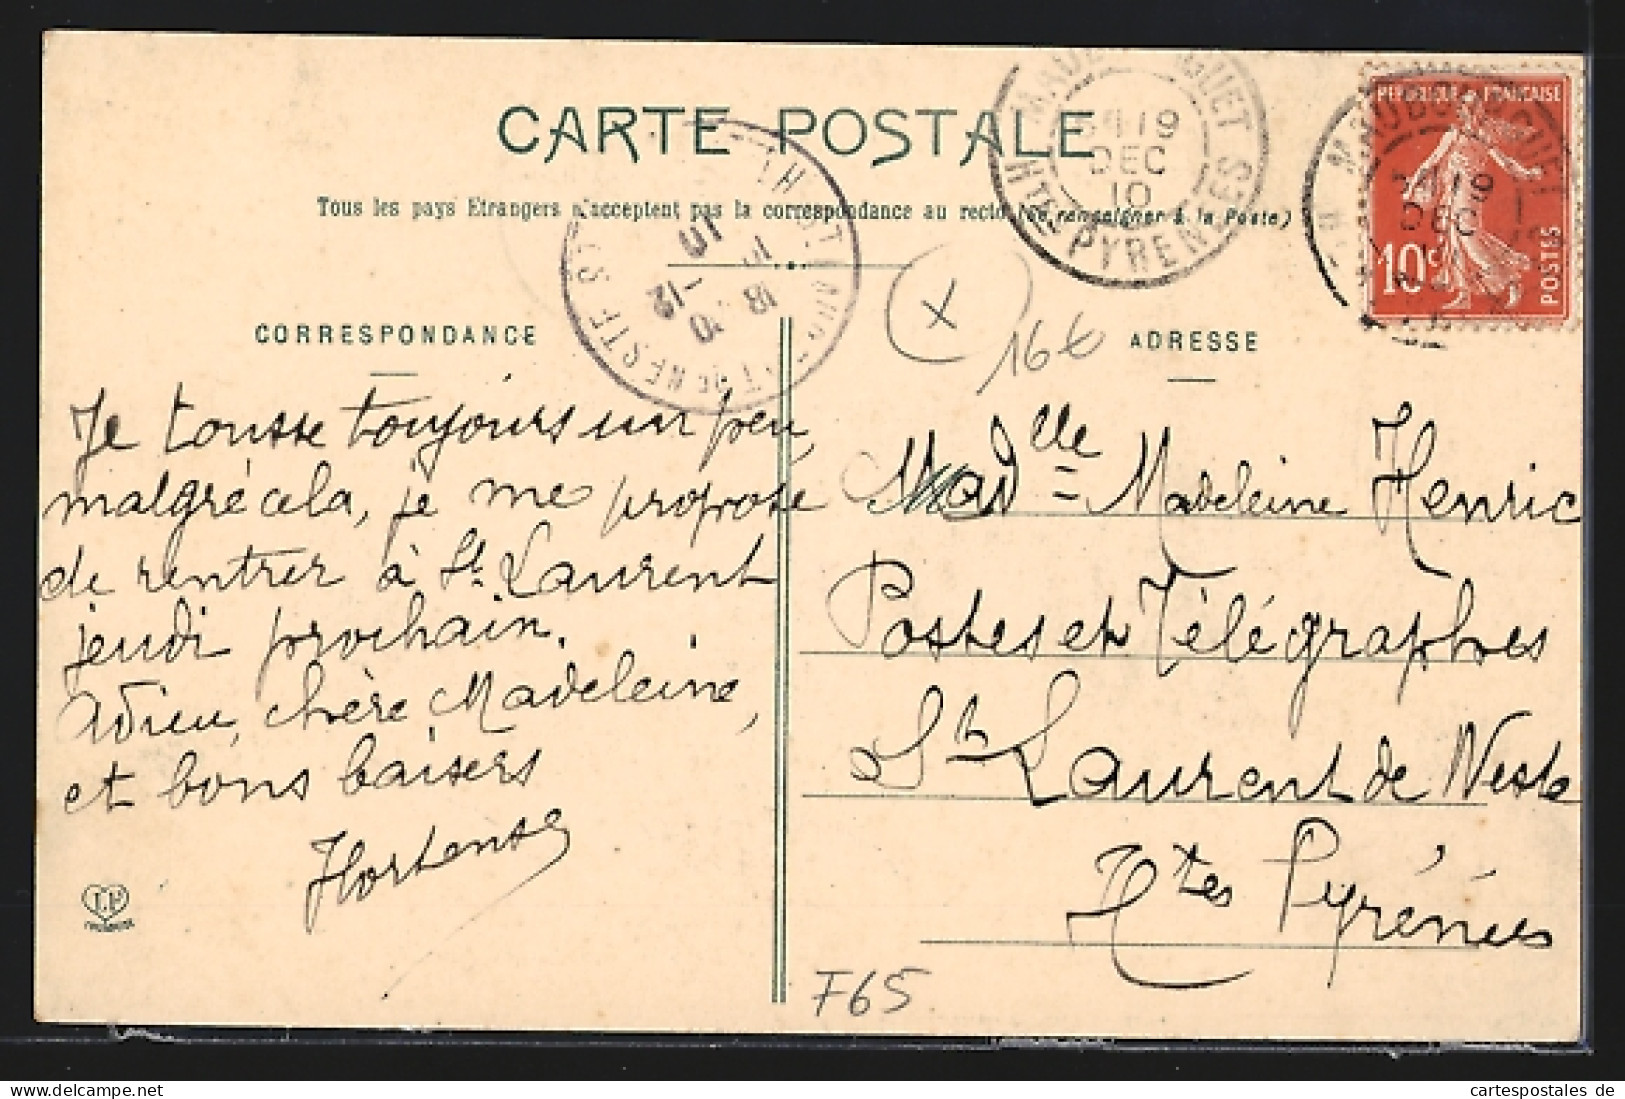 CARTE POSTALE
Tous les pays Etrangers n'acceptent pas la correspondance au recto (se renseigner à la Poste)
CORRESPONDANCE
Je tousse toujours un peu,
malgré cela, je me propose
de rentrer à St. Laurent
jeudi prochain.
Adieu, chère Madeleine,
et bons baisers
Hortense
ADRESSE
Madelle Madeleine Henric
Postes et Télégraphes
St Laurent de Neste
Htes Pyrénées
REPUBLIQUE FRANÇAISE
10c
POSTES
19
DEC
10
Htes PYRENEES
19
DEC
18 10
10 - 12
10
DE NESTE
X
16€
F65
cartespostales de